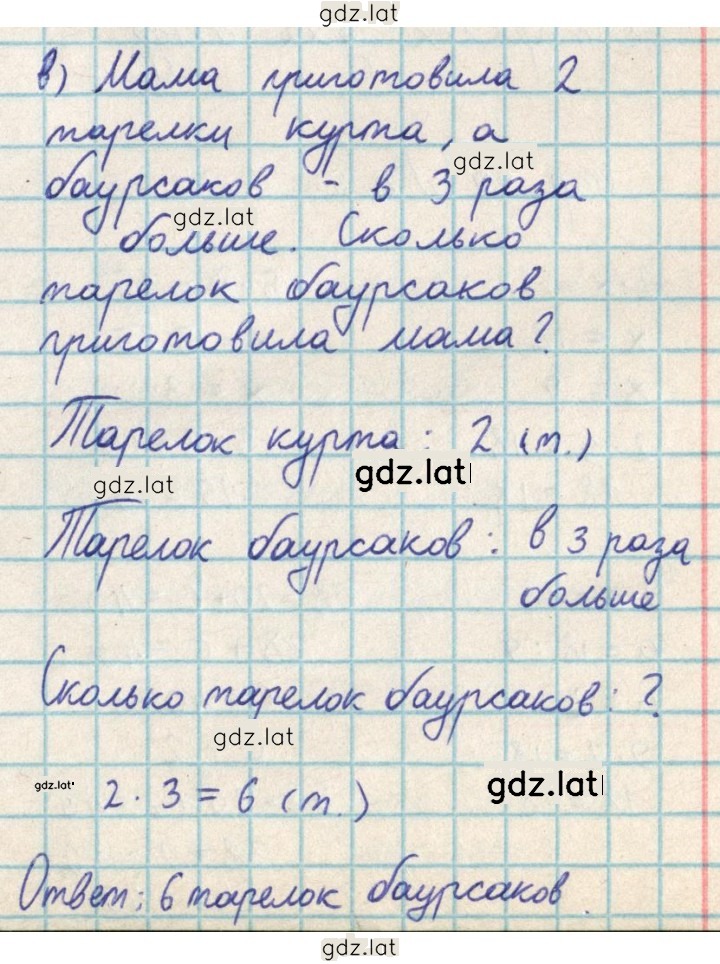 gdz.lat
в) Мама приготовила 2
тарелки курта, а
gdz.lat
баурсаков - в 3 раза
gdz.lat
больше. Сколько
тарелок баурсаков
приготовила мама?
Тарелок курта: 2 (т.)
gdz.lat
gdz.lat
Тарелок баурсаков: в 3 раза
больше
Сколько тарелок баурсаков: ?
gdz.lat
gdz.lat
gdz.lat
2 · 3 = 6 (т.)
Ответ: 6 тарелок баурсаков.
gdz.lat